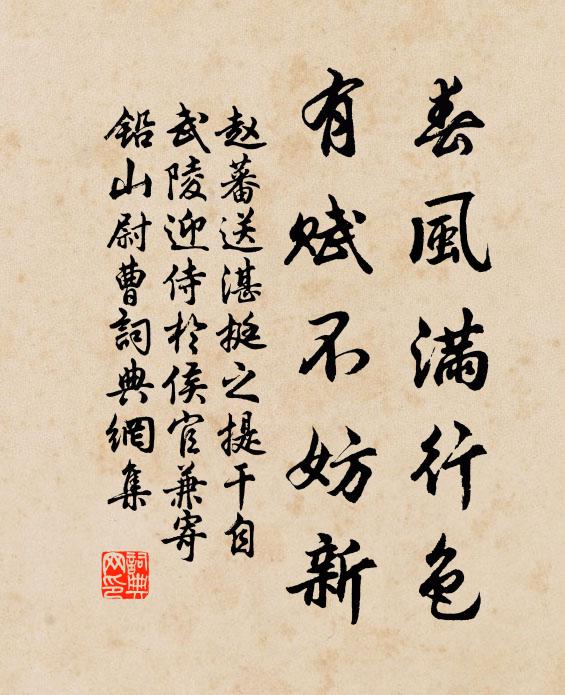 春風滿行色
有賦不妨新
赵蕃送湛挺之提干自
武陵迎侍於侯官兼寄
铅山尉曹詞典網集
詞典
网印